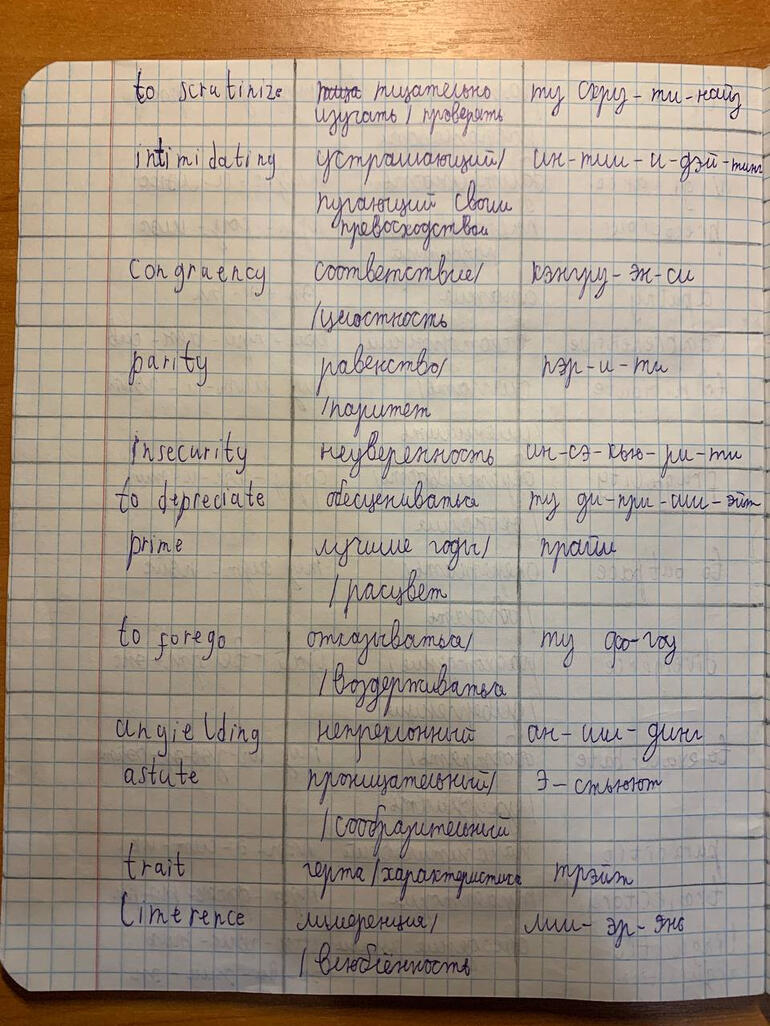 to scrutinize тщательно ту скру-ти-найз
изучать / проверять
intimidating устрашающий/ ин-тим-и-дэй-тинг
пугающий своим
превосходством
congruency соответствие/ кэнгру-эн-си
/целостность
parity равенство/ пэр-и-ти
/паритет
insecurity неуверенность ин-сэ-кью-ри-ти
to depreciate обесцениваться ту ди-при-ши-эйт
prime лучшие годы/ прайм
/ расцвет
to forego отказываться/ ту фо-гоу
/воздерживаться
angielding непреклонный ан-иил-динг
astute проницательный/ э-стьюют
/сообразительный
trait черта/характеристика трэйт
limerence лимеренция/ лим-эр-энс
/влюблённость